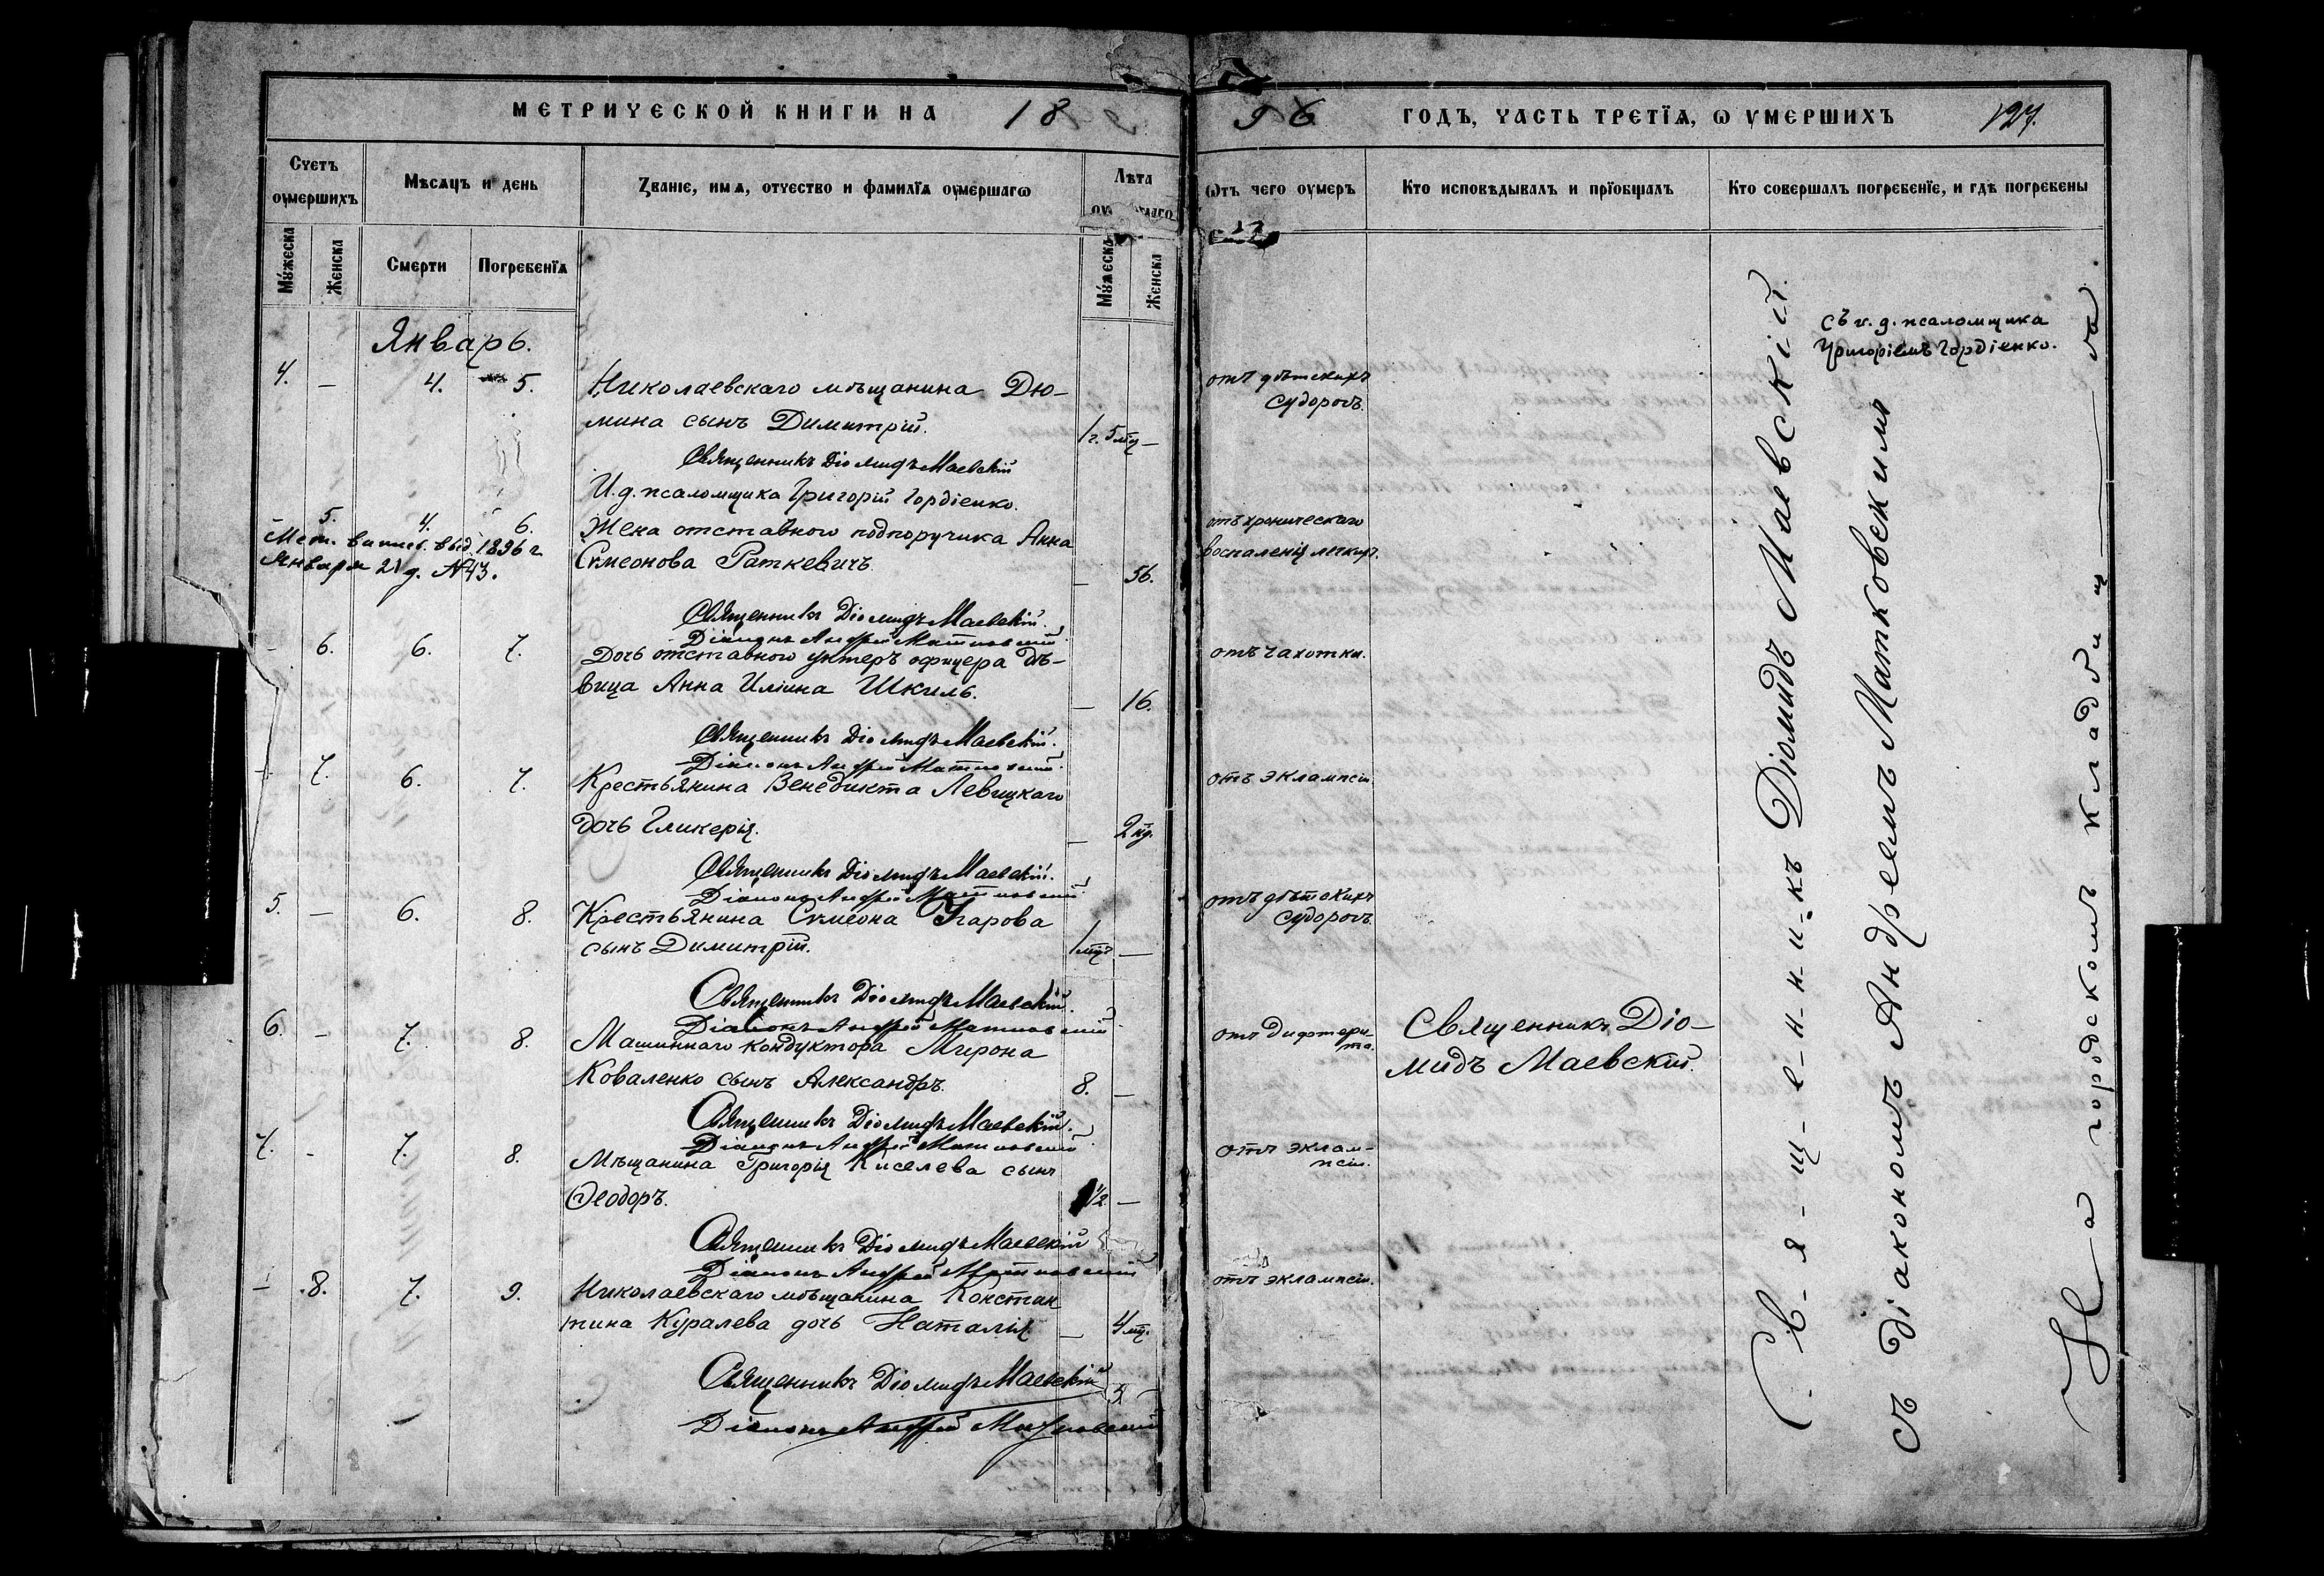 МЕТРИЧЕСКОЙ КНИГИ НА 18
96 ГОДЪ, ЧАСТЬ ТРЕТІѦ, Ѡ УМЕРШИХЪ 127.
Счетъ оумершихъ
Мѣсѧцъ и день
Званіе, имѧ, отчество и фамиліѧ оумершагѡ
Лѣта
Ѡтъ чего оумеръ
Кто исповѣдывалъ и прїобщалъ
Кто совершалъ погребенїе, и гдѣ погребены
Мꙋжеска
Женска
Смерти
Погребенїѧ
Мꙋжеска
Женска
Январь.
4. — 4. 5. Николаевскаго мѣщанина Дю-
мина сынъ Димитрій. 1 г. 5 мц —
отъ дѣтскихъ
судорогъ.
Священникъ Діомидъ Маевскій
И.д. псаломщика Григорій Гордіенко.
- 5. 4. 6. Жена отставного подпоручика Анна
Симеонова Раткевичъ. — 56.
Метр. выпис. выд. 1896 г.
Января 21 д. №43.
отъ хроническаго
воспаленія легкихъ.
Священникъ Діомидъ Маевскій.
Діаконъ Андрей Матковскій.
- 6. 6. 7. Дочь отставного унтеръ офицера дѣ-
вица Анна Иліина Шкиль. — 16.
отъ чахотки.
Священникъ Діомидъ Маевскій.
Діаконъ Андрей Матковскій.
- 7. 6. 7. Крестьянина Венедикта Левицкаго
дочь Гликерія. — 2 нд.
отъ эклампсіи
Священникъ Діомидъ Маевскій.
Діаконъ Андрей Матковскій.
5. — 6. 8. Крестьянина Симеона Угарова
сынъ Димитрій. 1 мц —
отъ дѣтскихъ
судорогъ.
Священникъ Діомидъ Маевскій.
Діаконъ Андрей Матковскій.
6. - 7. 8. Машиннаго кондуктора Мирона
Коваленко сынъ Александръ. 8. —
отъ дифтери-
та.
Священникъ Діо-
мидъ Маевскій.
Священникъ Діомидъ Маевскій.
Діаконъ Андрей Матковскій
7. - 7. 8. Мѣщанина Григорія Киселева сынъ
Ѳеодоръ. 1/2 —
отъ эклам-
псіи.
Священникъ Діомидъ Маевскій
Діаконъ Андрей Матковскій
- 8. 7. 9. Николаевскаго мѣщанина Констан
тина Куралева дочь Наталія — 4 мц.
отъ эклампсіи.
Священникъ Діомидъ Маевскій
Діаконъ Андрей Матковскій
С-в-я-щ-е-н-н-и-къ Діомидъ Маевскій.
съ и. д. псаломщика
Григоріемъ Гордіенко.
съ діакономъ Андреемъ Матковскимъ
На городскомъ кладбищ——ѣ.